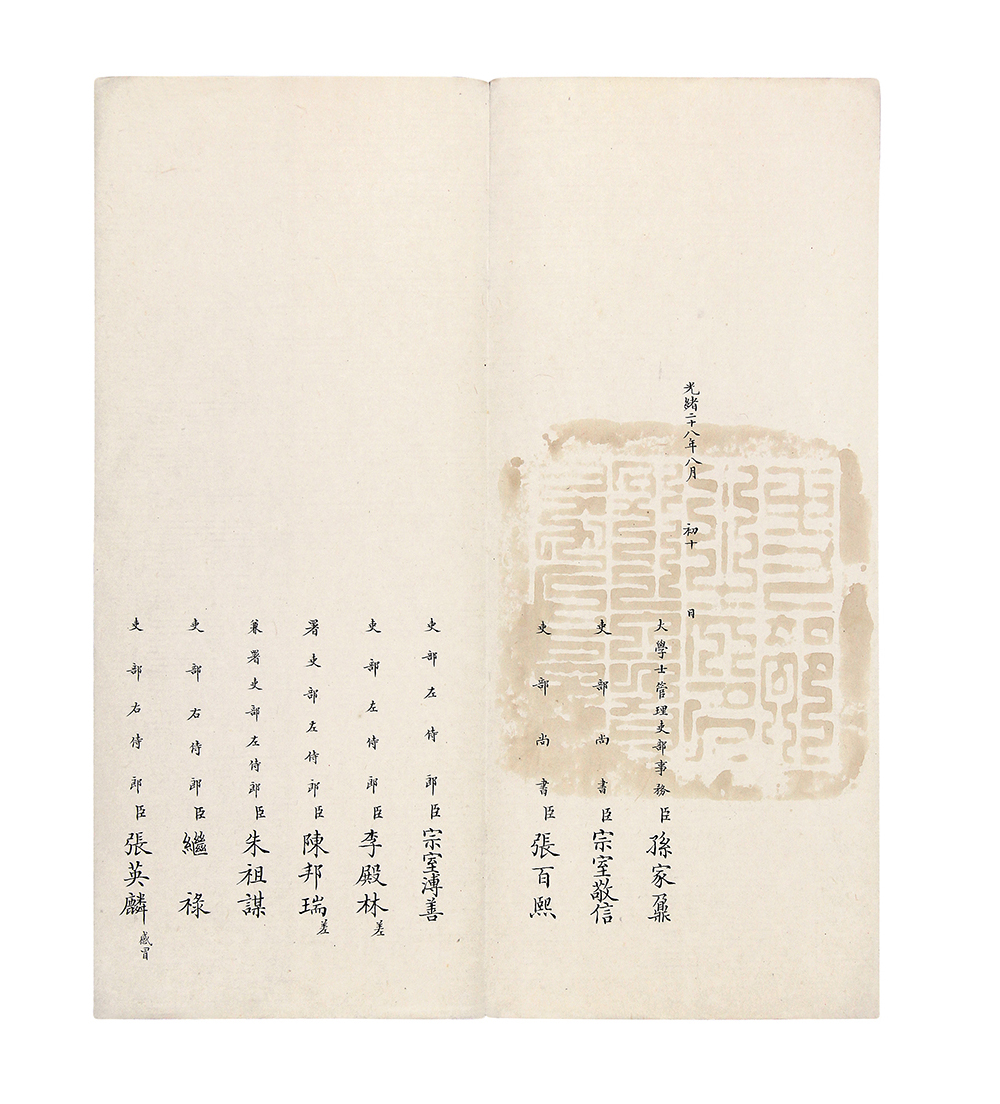 光緒二十八年八月 初十 日
大學士管理吏部事務臣孫家鼐
吏部尚書臣宗室敬信
吏部尚書臣張百熙
吏部左侍郎臣宗室溥善
吏部左侍郎臣李殿林差
署吏部左侍郎臣陳邦瑞差
兼署吏部左侍郎臣朱祖謀
吏部右侍郎臣繼祿
吏部右侍郎臣張英麟感冒